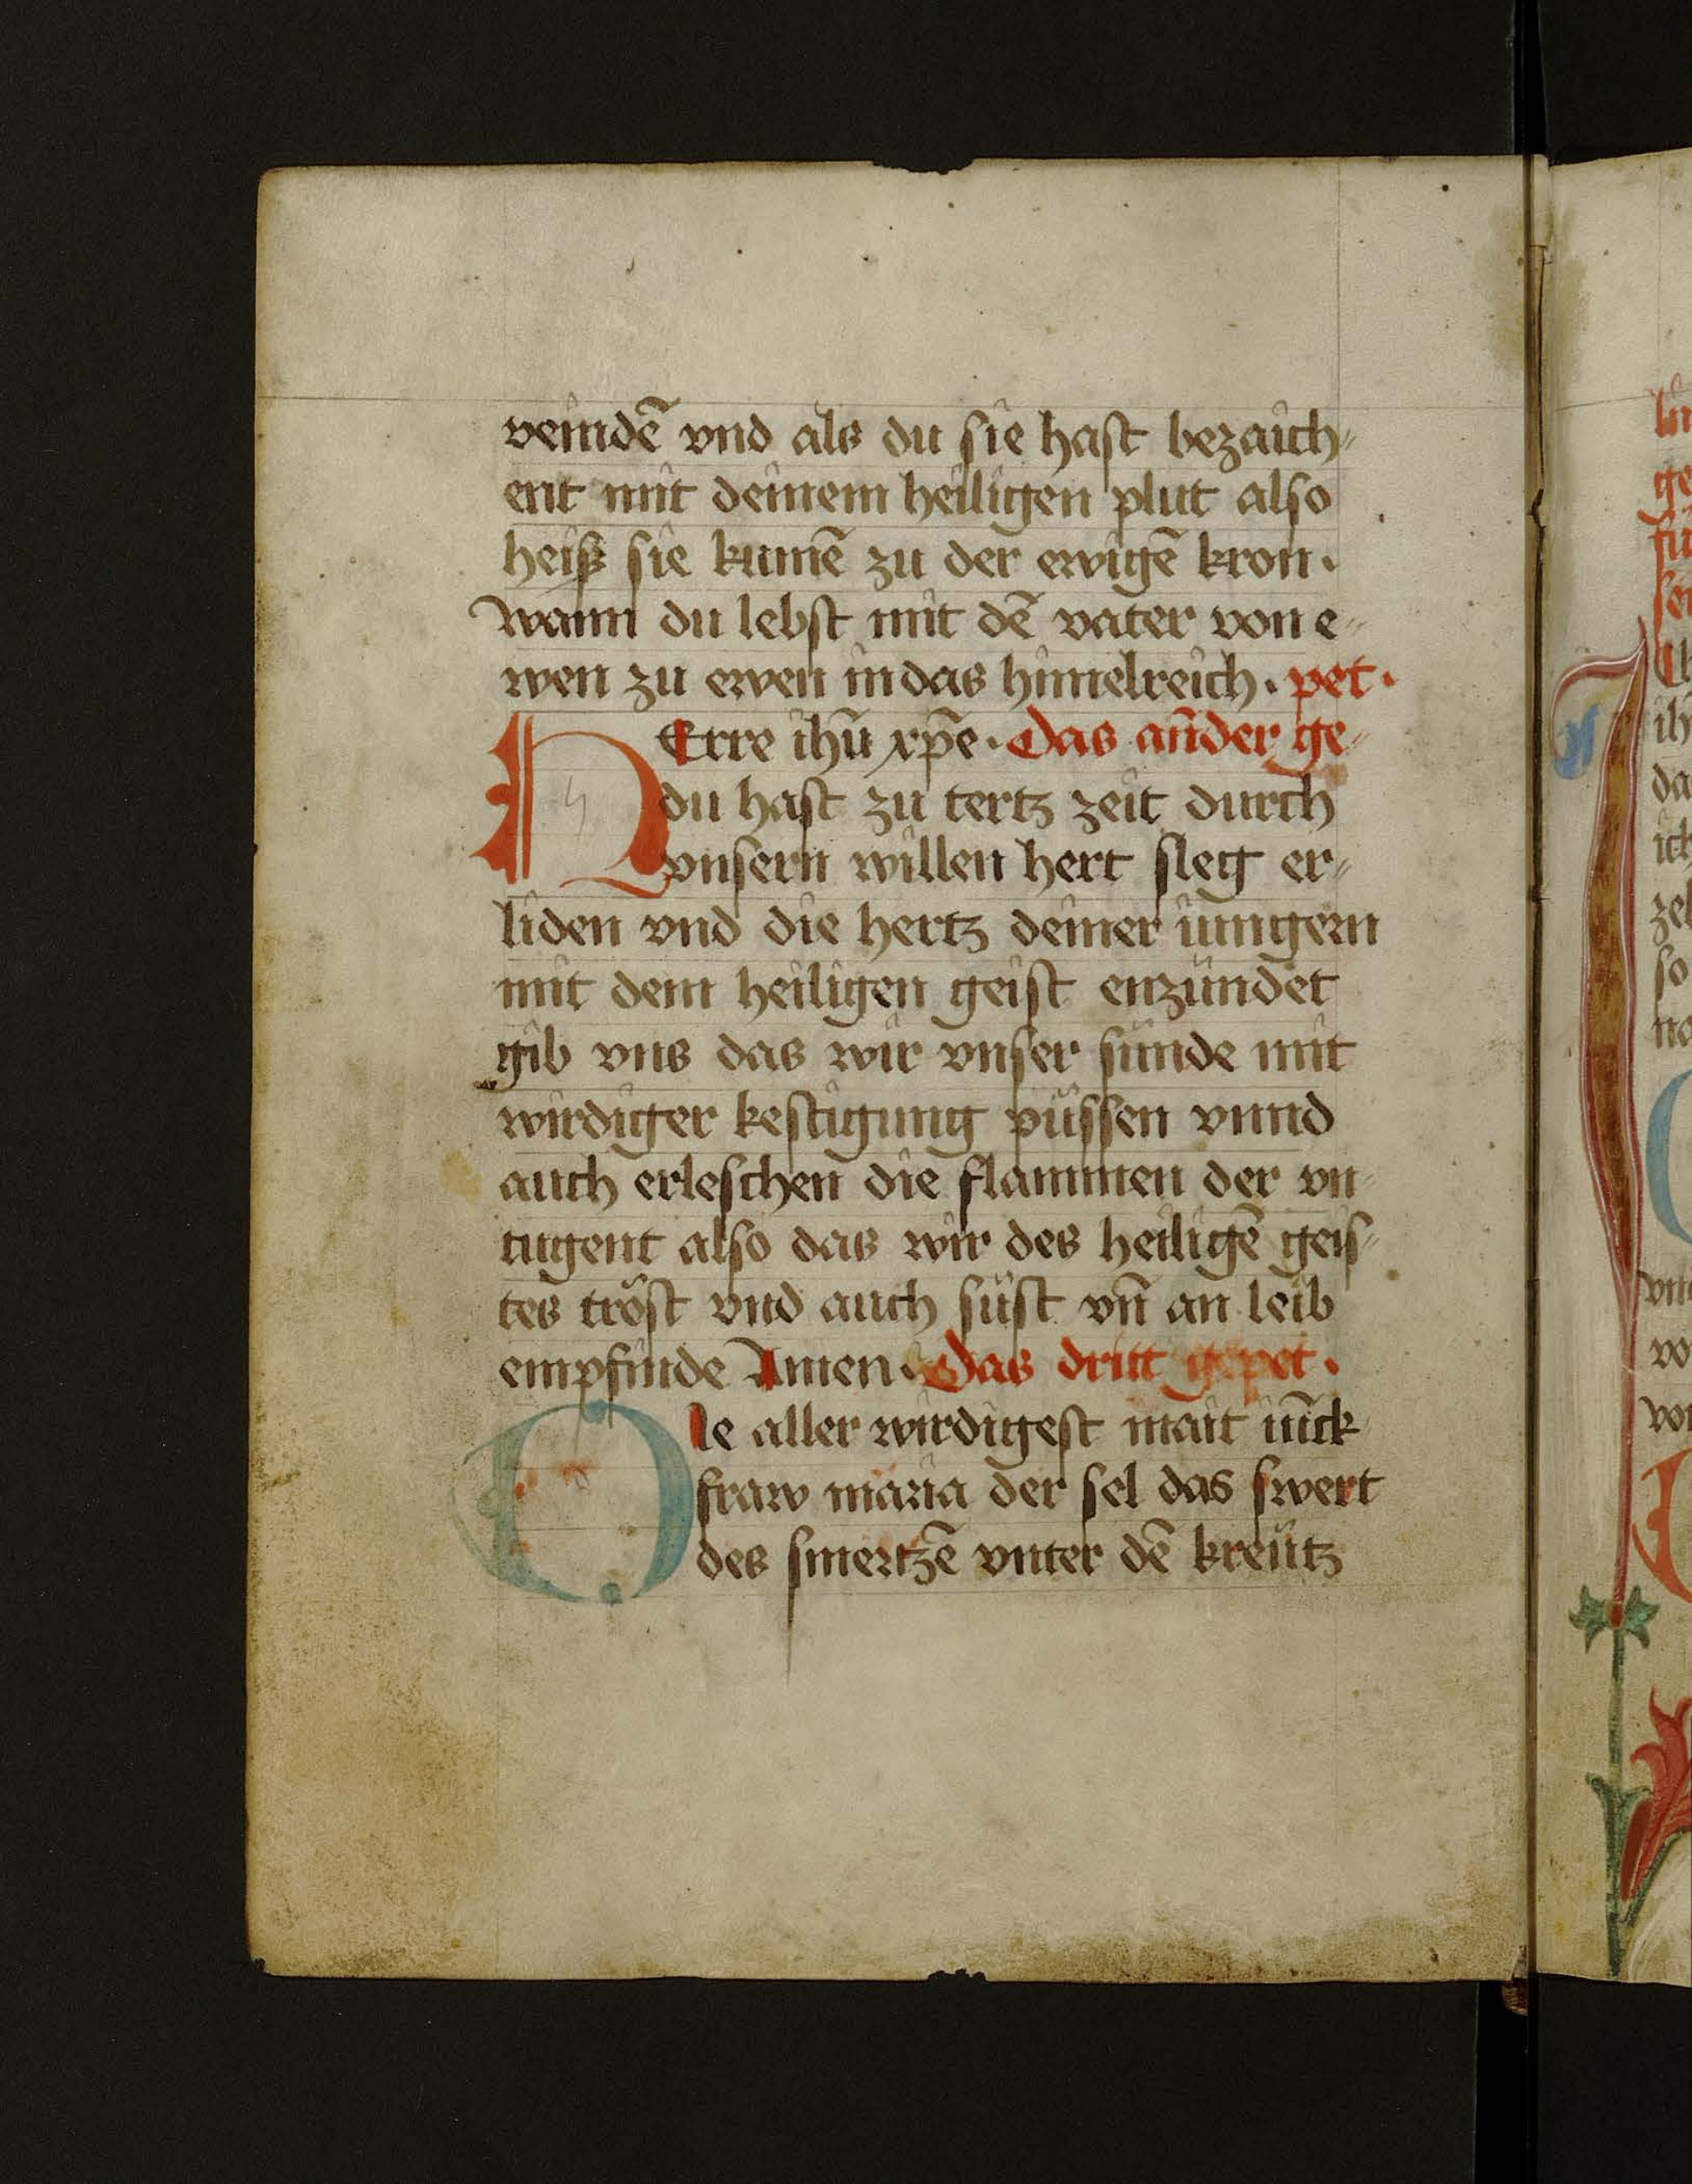 veindē vnd als du sie hast bezaich⸗
ent mit deinem heiligen plut also
heiß sie kumē zu der ewigē kron.
wann du lebst mit dē vater von e⸗
wen zu ewen in das himelreich. pet.
HErre ihū xp̄e. Das an̄der ge⸗
du hast zu tertz zeit durch
vnsern willen hert sleg er⸗
liden vnd die hertz deiner iungern
mit dem heiligen geist enzündet
gib vns das wir vnser sünde mit
wirdiger kestigung püssen vnnd
auch erleschen die flammen der vn⸗
tugent also das wir des heiligē geis⸗
tes tröst vnd auch süst vn̄ an leib
empfinde Amen. Das dritt gepet.
Ole aller wirdigest mait iūck⸗
fraw maria der sel das swert
des smertzē vnter dē kreütz